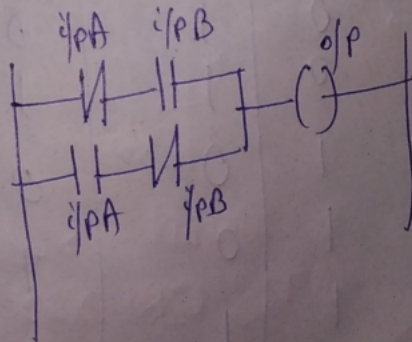 i/pA i/pB
o/p
i/pA i/pB